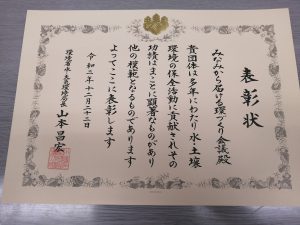 表彰状
みなみから届ける環づくり会議殿
貴団体は多年にわたり水・土壌
環境の保全活動に貢献されその
功績はまことに顕著なものがあり
他の模範となるものであります
よってここに表彰します
令和二年十二月二十三日
環境省水・大気環境局長 山本昌宏